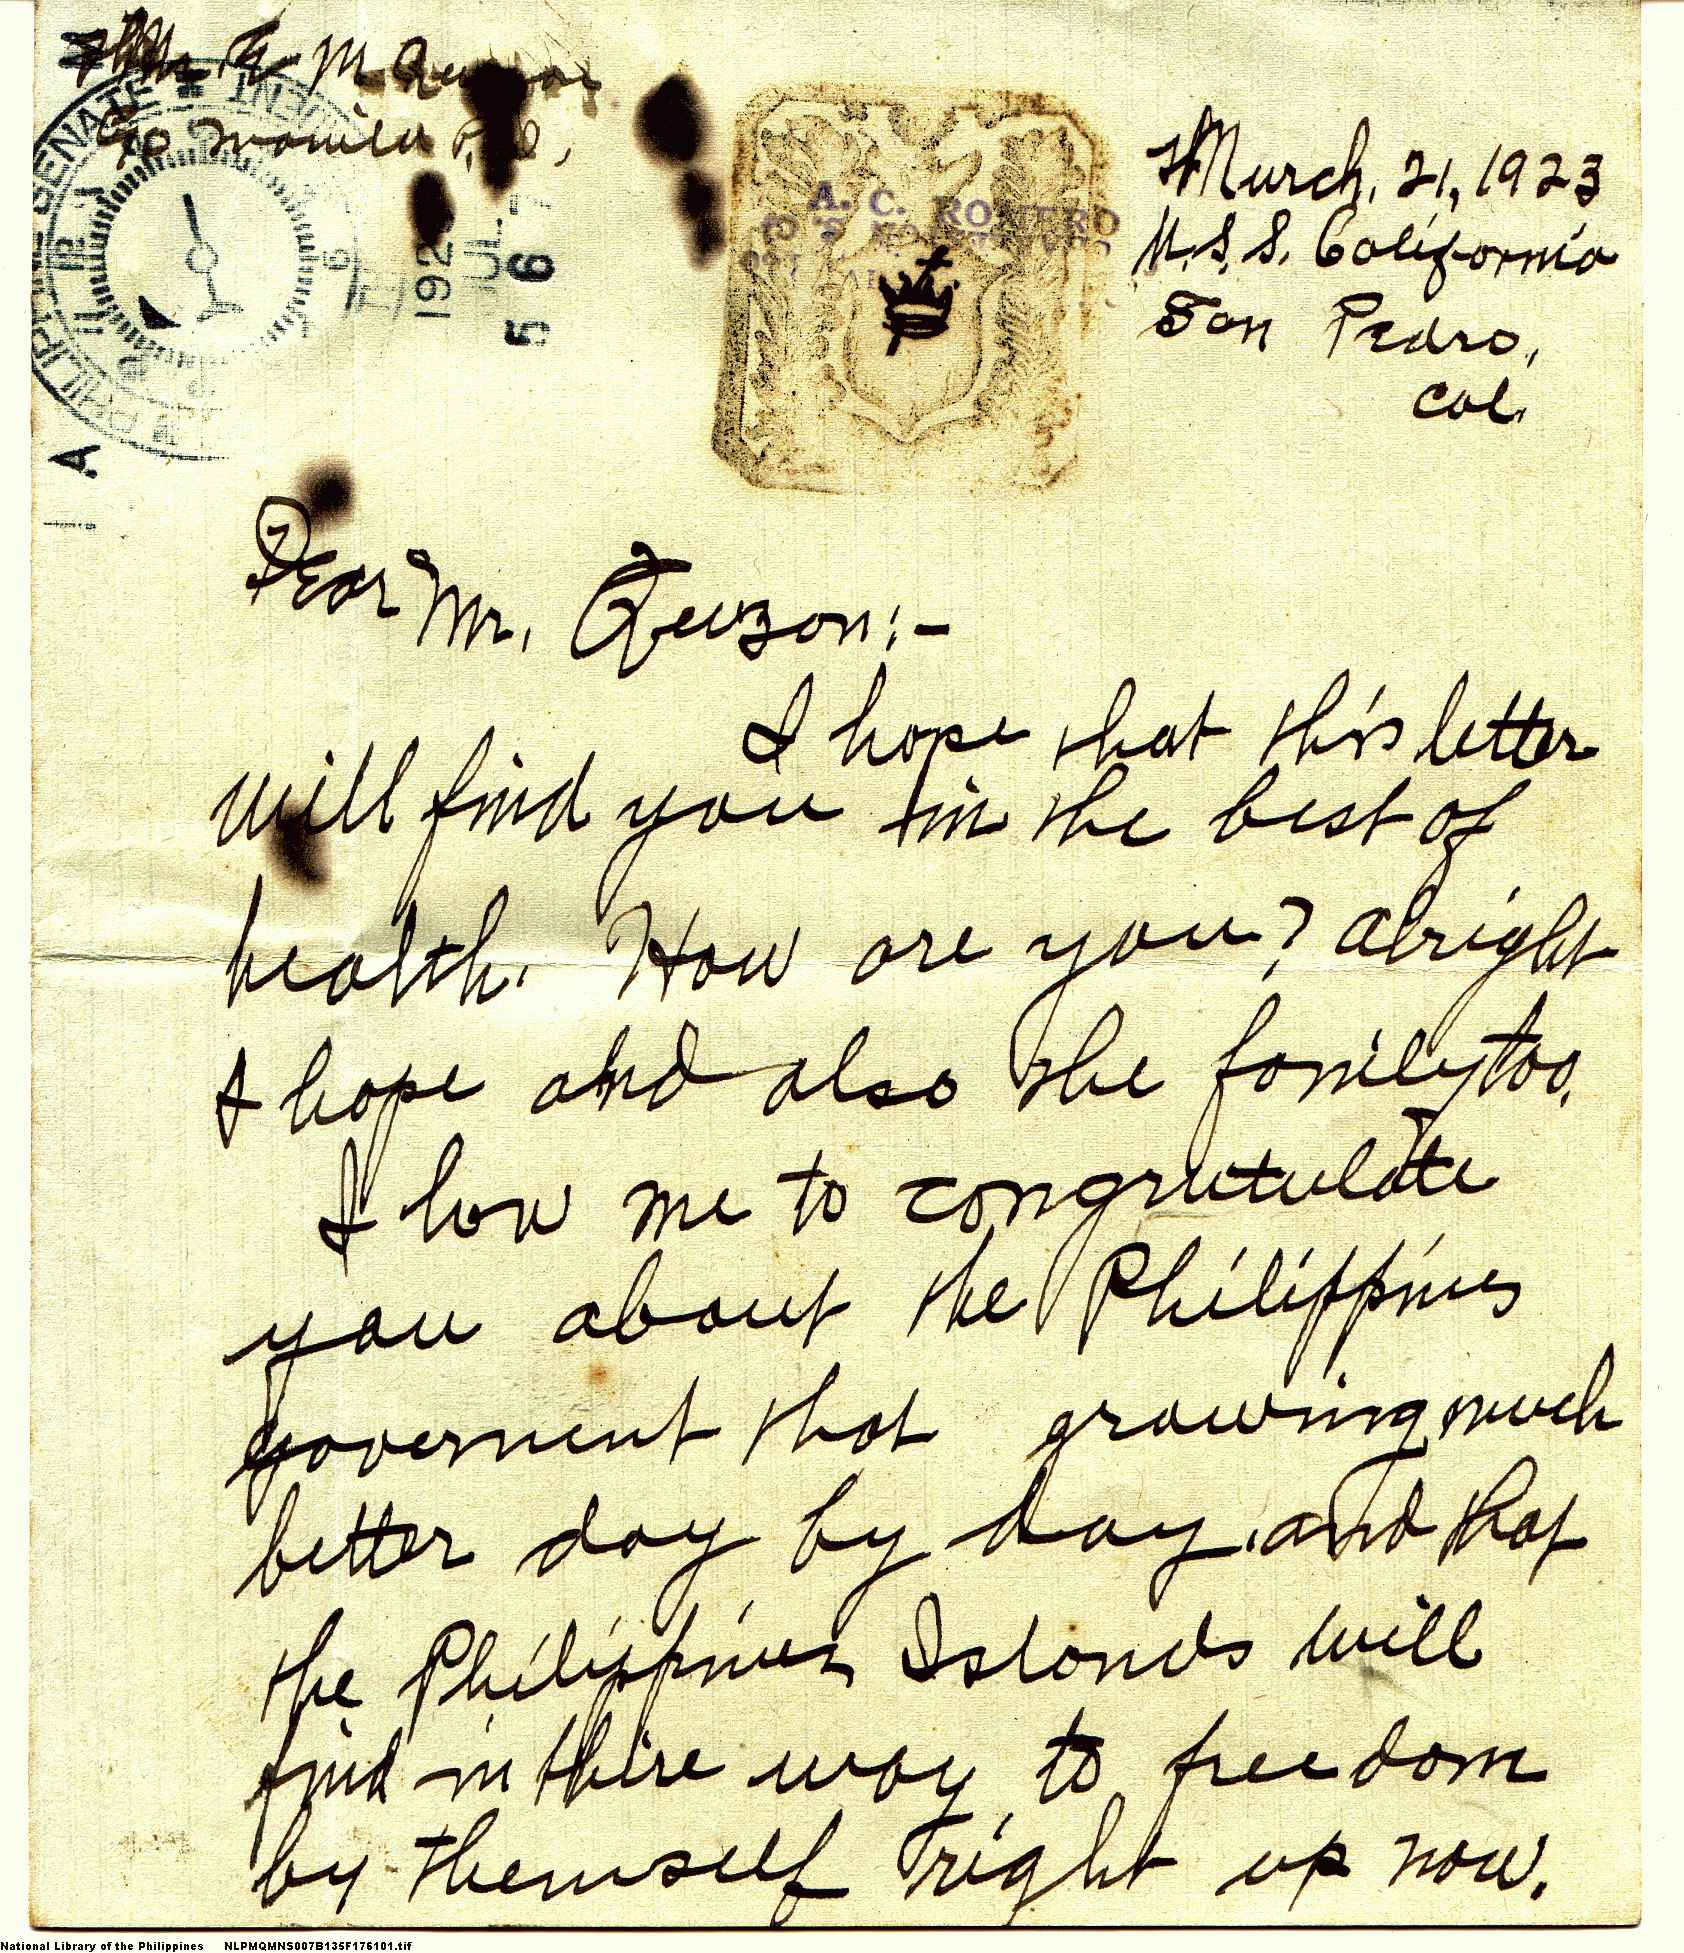 Mr. M. Quezon
c/o Manila P.I.,
PHILIPPINE SENATE
192
JUL
5 6
A
A. C. ROMERO
March, 21, 1923
U.S.S. California
San Pedro,
Cal.
Dear Mr. Quezon:-
I hope that this letter
will find you in the best of
health. How are you? Alright
I hope and also the family too.
I low me to congratulate
you about the Philippines
government that growing much
better day by day, and that
the Philippines Islands will
find in thire way to freedom
by themself right up now.
National Library of the Philippines NLPMQMNS007B135F176101.tif